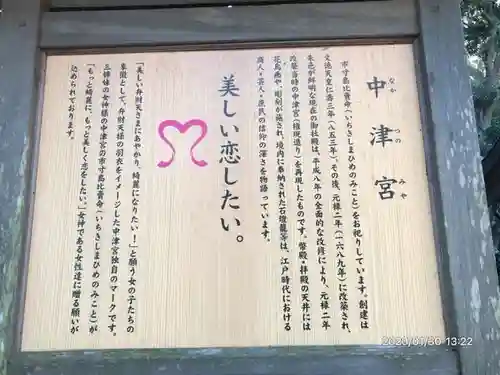 中津宮
なか
つの
みや
市寸島比賣命(いちきしまひめのみこと)をお祀りしています。創建は
文徳天皇仁寿三年(八五三年)。その後、元禄二年(一六八九年)に改築され、
朱色が鮮明な現在の御社殿は、平成八年の全面的な改修により、元禄二年
改築当時の中津宮(権現造り)を再現したものです。幣殿・拝殿の天井には
花鳥画や、彫刻が施され、境内に奉納された石燈籠等は、江戸時代における
商人・芸人・庶民の信仰の深さを物語っています。
美しい恋したい。
「美しい弁財天さまにあやかり、綺麗になりたい!」と願う女の子たちの
象徴として、弁財天様の羽衣をイメージした中津宮独自のマークです。
三姉妹の女神様の中津宮の市寸島比賣命(いちきしまひめのみこと)が
「もっと綺麗に、もっと美しく恋をしたい。」女神である女性達に贈る願いが
込められております。
2020/01/30 13:22